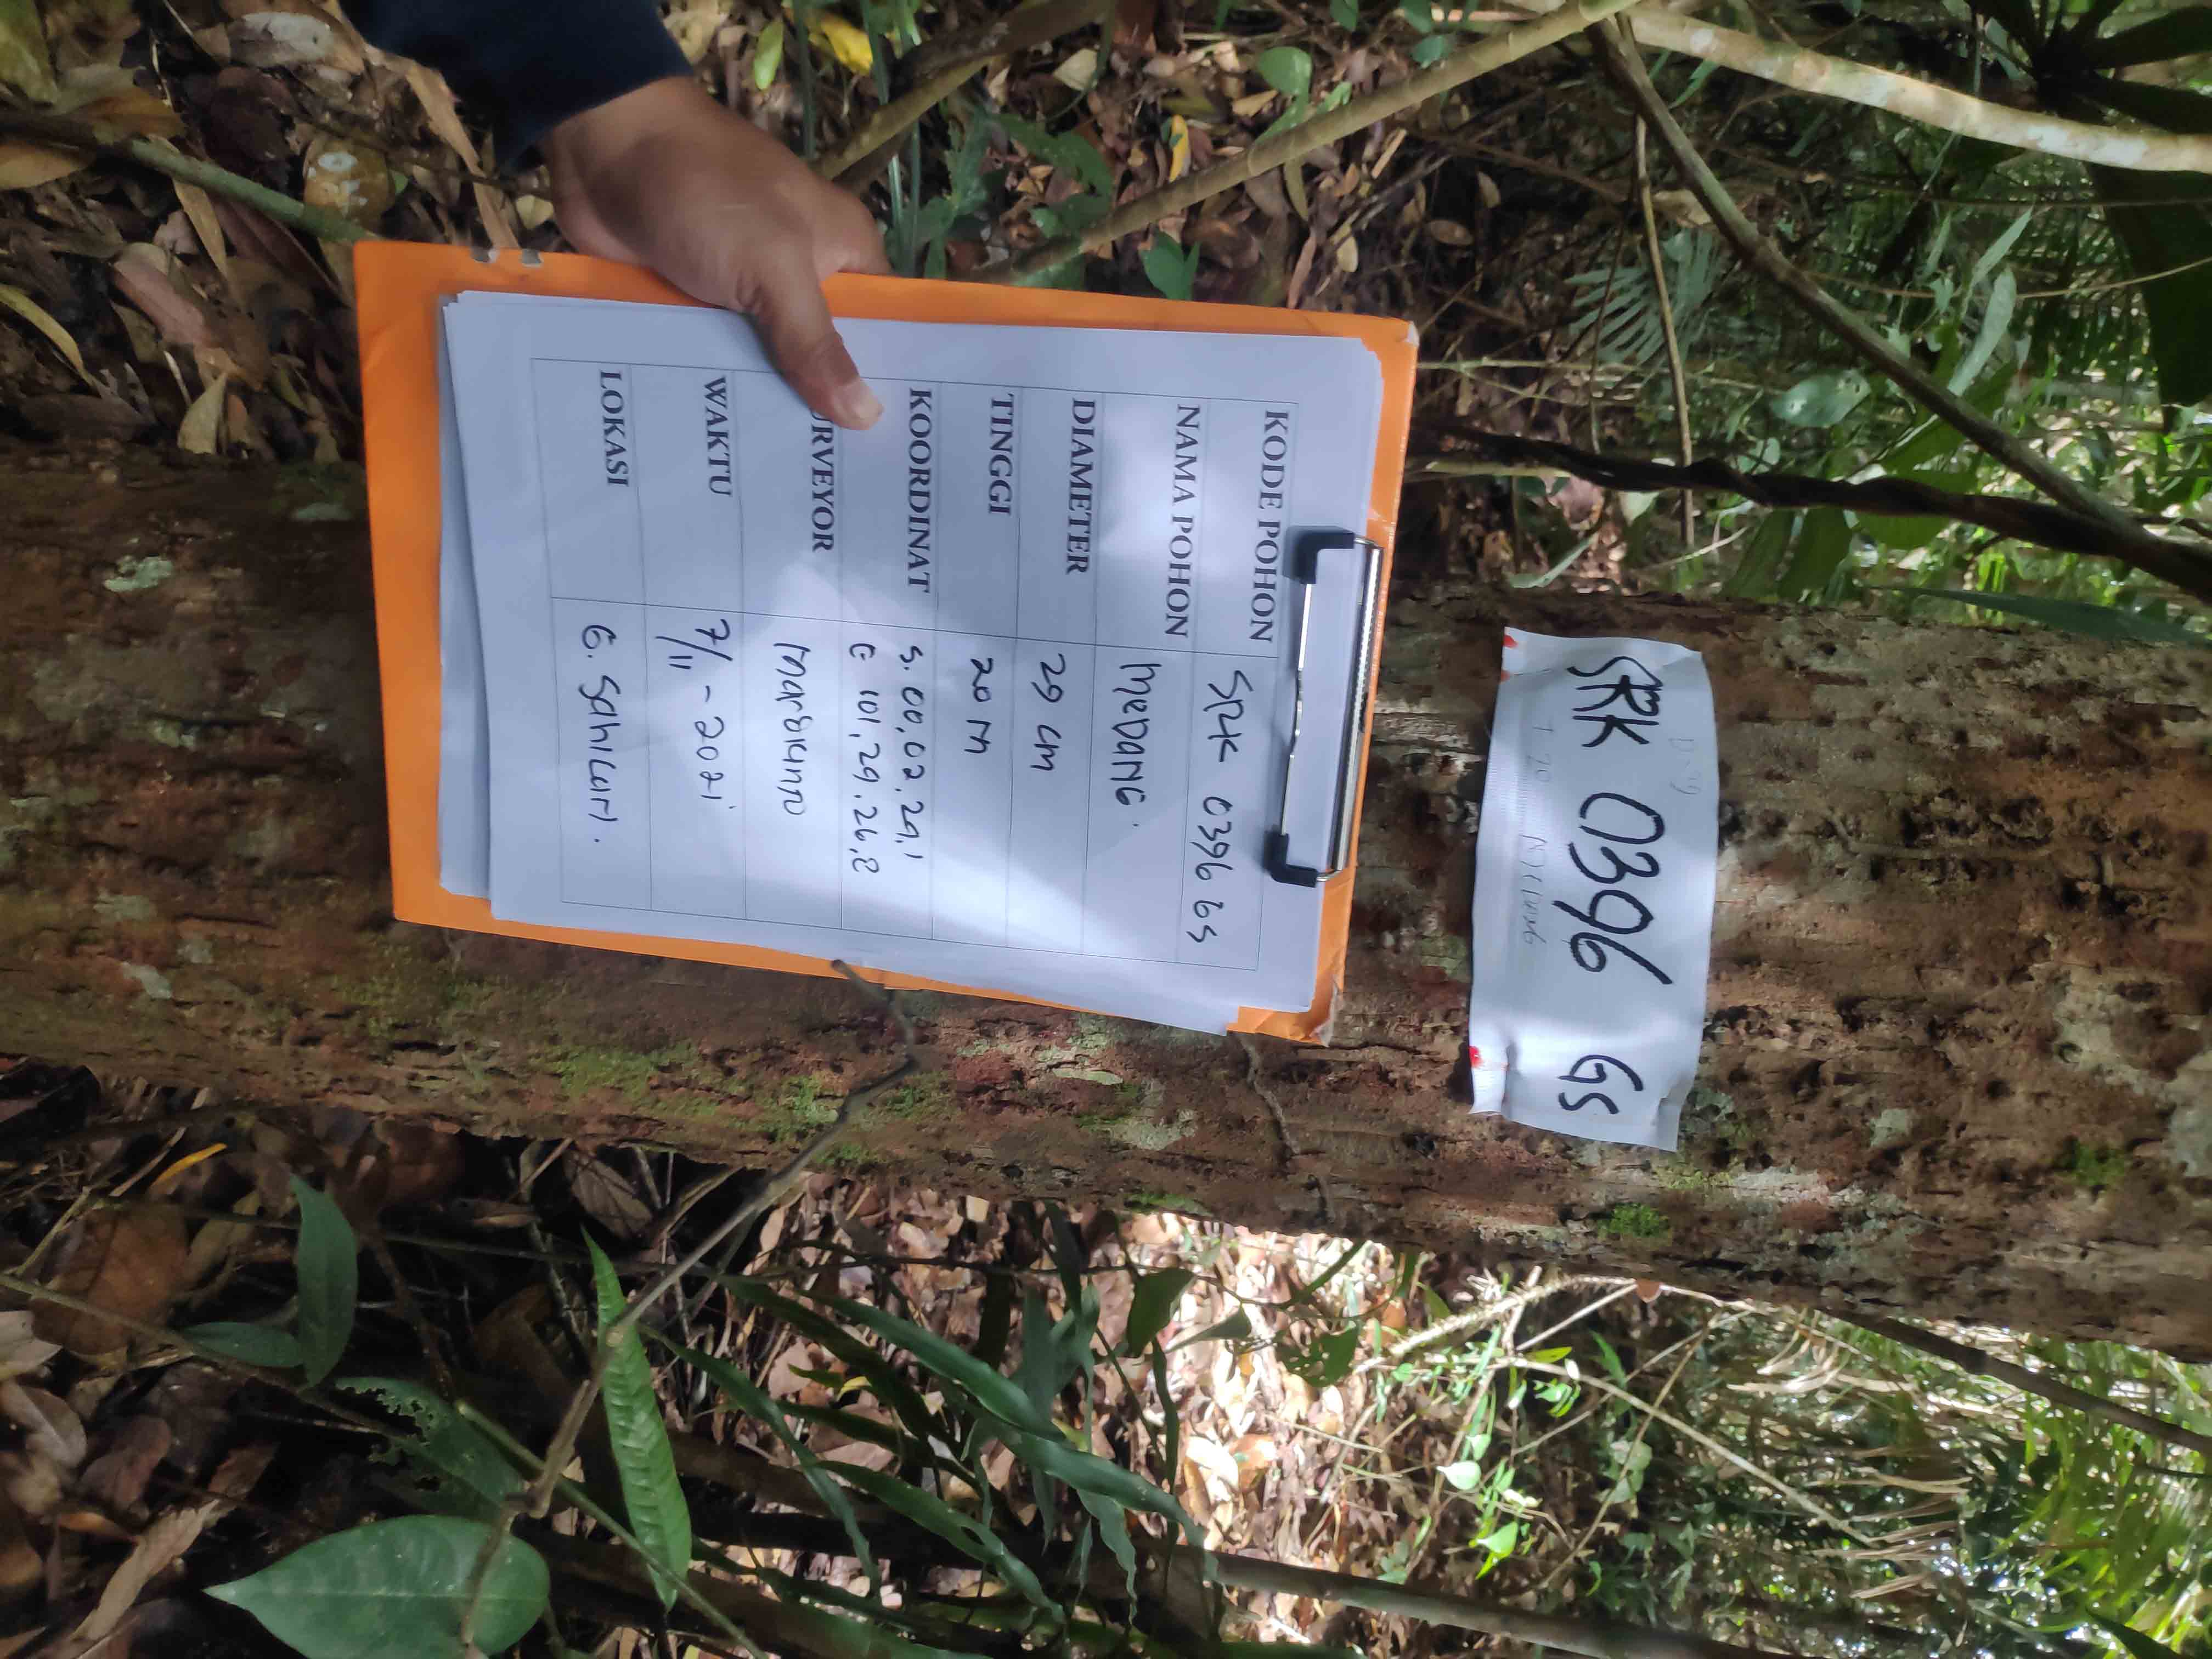 SRK 0396 GS
MEDANG
KODE POHON
SRK 0396 GS
NAMA POHON
MeDANG
DIAMETER
29 cm
TINGGI
20 m
KOORDINAT
S. 00,02,29,1
E 101,29.26,8
URVEYOR
WAKTU
7/11 - 2021
LOKASI
G. Sahilan.